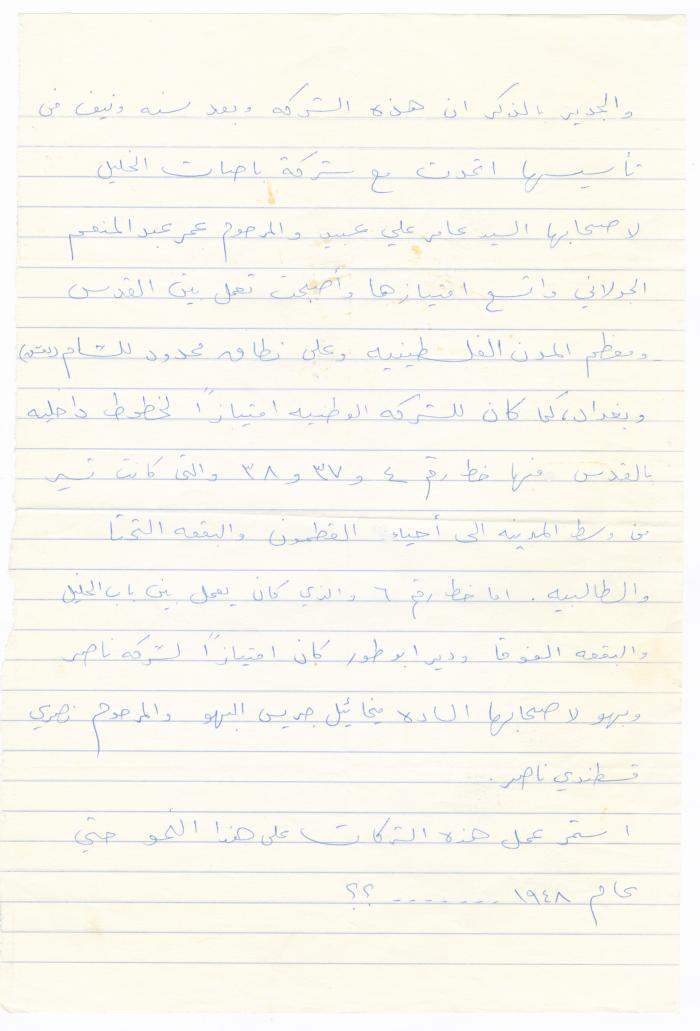 والجدير بالذكر ان هذه الشركه وبعد سنه ونيف من
تأسيسها اتحدت مع شركة باصات الخليل
لاصحابها السيد عامر علي عبيد والمرحوم عمر عبد المنعم
الجولاني واتسع امتيازها وأصبحت تعمل بين القدس
ومعظم المدن الفلسطينيه وعلى نطاق محدود للشام (دمشق)
وبغداد، كما كان للشركه الوطنيه امتيازاً لخطوط داخليه
بالقدس منها خط رقم ٤ و ٣٧ و ٣٨ والتي كانت تسير
من وسط المدينه الى أحياء القطمون والبقعه التحتا
والطالبيه . اما خط رقم ٦ والذي كان يعمل بين باب الخليل
والبقعه الفوقا ودير ابو طور كان امتيازاً لشركه ناصر
وبهو لاصحابها الساده ميخائيل جريس البهو والمرحوم نصري
قسطندي ناصر .
استمر عمل هذه الشركات على هذا النحو حتي
عام ١٩٤٨ -------- ؟؟